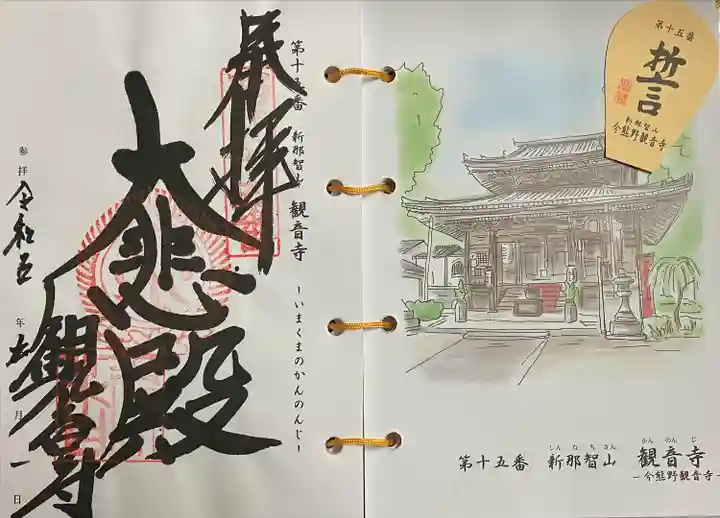 奉拝
第十五番 新那智山 観音寺
-いまくまのかんのんじ-
大悲殿
観音寺
参拝 令和五年 月 一日
第十五番
誓
新那智山
今熊野観音寺
しんなちさん かんのんじ
第十五番 新那智山 観音寺
-今熊野観音寺-